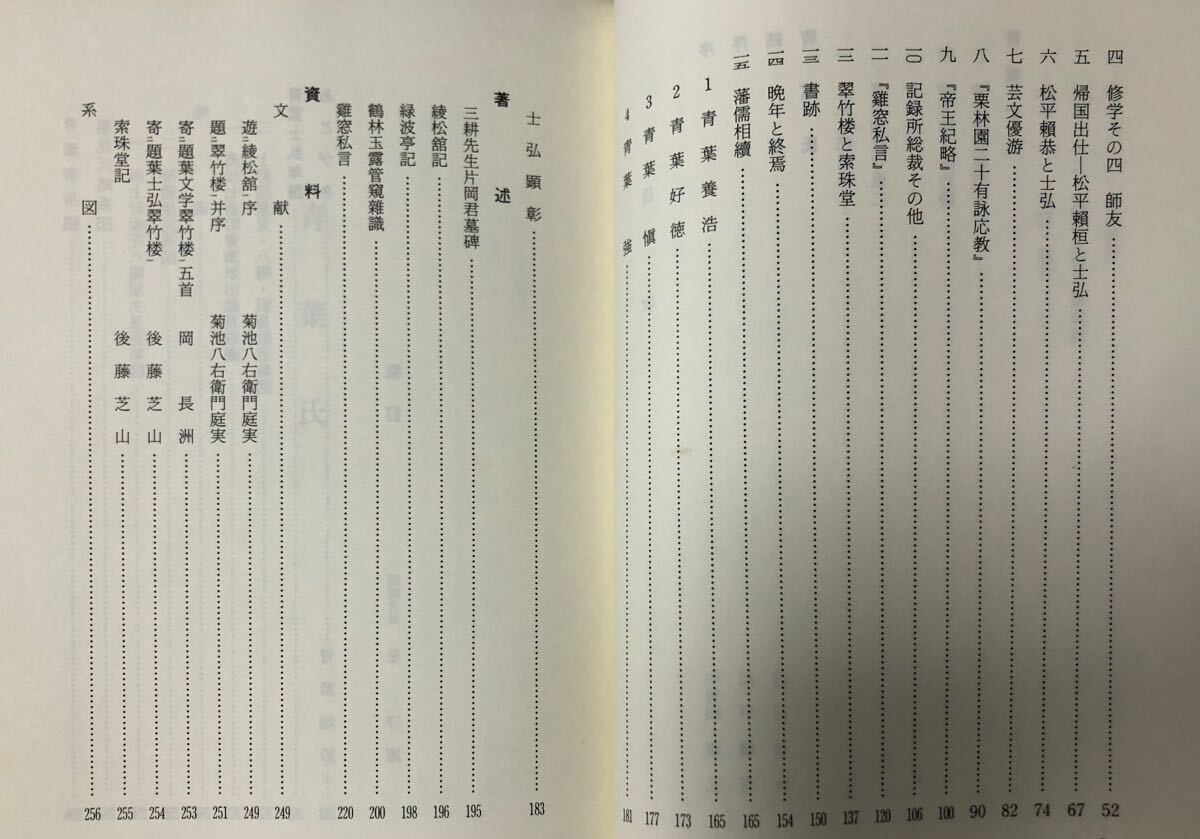 四 修学その四 師友 52
五 帰国出仕―松平頼桓と士弘 67
六 松平頼恭と士弘 74
七 芸文優游 82
八 『栗林園二十有詠応教』 90
九 『帝王紀略』 100
一〇 記録所総裁その他 106
一一 『雞窓私言』 120
一二 翠竹楼と索珠堂 137
一三 書跡 150
一四 晩年と終焉 154
一五 藩儒相續 165
1 青葉養浩 165
2 青葉好徳 173
3 青葉愼 177
4 青葉強 181
士弘顕彰 183
著述
三耕先生片岡君墓碑 195
綾松舘記 196
緑波亭記 198
鶴林玉露管窺雜識 200
雞窓私言 220
資料
文献 249
遊二綾松舘一序 菊池八右衛門庭実 249
題二翠竹楼一并序 菊池八右衛門庭実 251
寄三題葉文学翠竹楼一五首 岡長洲 253
寄三題葉士弘翠竹楼一 後藤芝山 254
索珠堂記 後藤芝山 255
系図 256